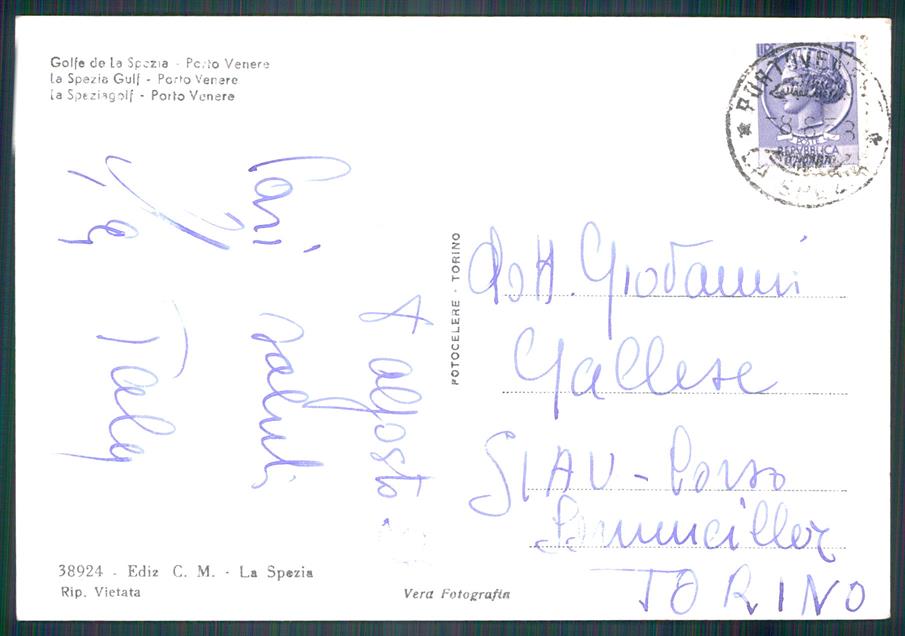 Golfe de La Spezia - Porto Venere
La Spezia Gulf - Porto Venere
La Speziagolf - Porto Venere
LIRE 15
POSTE
REPVBBLICA
ITALIANA
PORTOVENERE
LA SPEZIA
8.6
4 agosto
Cari
saluti
FOTOCELERE - TORINO
Dott. Giovanni
Gallese
SIAU - Corso
TORINO
38924 - Ediz C. M. - La Spezia
Rip. Vietata
Vera Fotografia